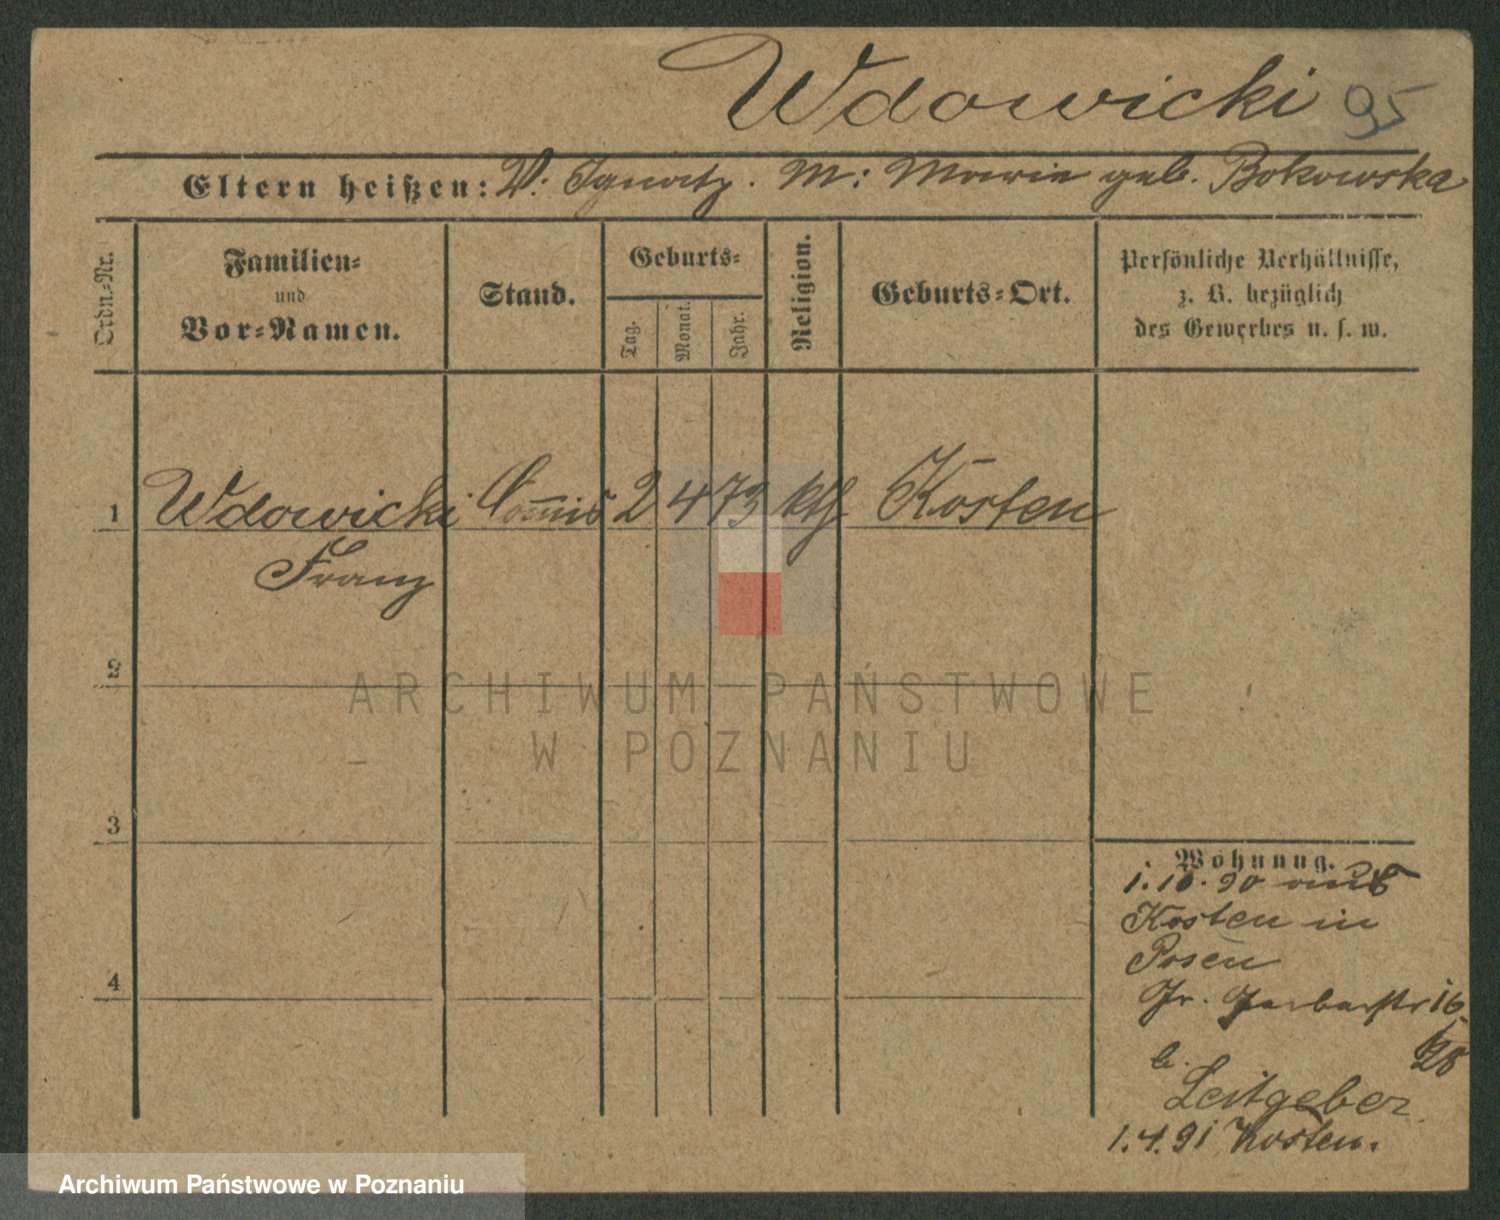 Wdowicki 95
Eltern heißen: V: Ignatz. M: Marie geb. Bokowska
Ordn.-Nr.
Familien-
und
Vor-Namen.
Stand.
Geburts-
Tag.
Monat.
Jahr.
Religion.
Geburts-Ort.
Persönliche Verhältnisse,
z. B. bezüglich
des Gewerbes u. s. w.
1 Wdowicki Commis 2 4 73 kth Kosten
Franz
2
ARCHIWUM PAŃSTWOWE
W POZNANIU
3
Wohnung.
1.10.90 aus
Kosten in
Posen
4
Gr. Gerberstr 16
b.
Leitgeber
1.4.91 Kosten.
Archiwum Państwowe w Poznaniu